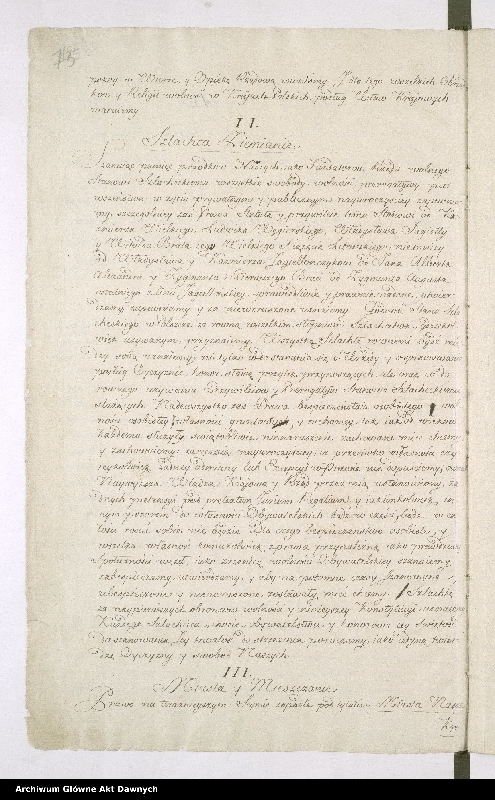 pokoy w Wierze, y Opiekę Rządową winniśmy. J dla tego wszelkich Obrząd-
kow y Religii wolność w Kraiach Polskich, podług Ustaw Kraiowych
waruiemy
II.
Szlachta Ziemianie.
Szanuiąc pamięć przodkow Naszych, iako Fundatorow Rządu wolnego
Stanowi Szlacheckiemu wszystkie swobody, wolności, prerogatywy pier-
wszeństwa w życiu prywatnym y publicznym nayuroczyściey zapewnia-
my, szczegulniey zaś Prawa, Statuta y przywileie temu Stanowi od Ka-
zimierza Wielkiego, Ludwika Węgierskiego, Władysława Jagiełły
y Witołda Brata iego Wielkiego Xiążęcia Litewskiego, niemniey
od Władysława y Kazimierza Jagiellończykow, od Jana Alberta
Alexandra y Zygmunta Pierwszego Braci, od Zygmunta Augusta
ostatniego z Linii Jagiellońskiey, sprawiedliwie y prawnie nadane, utwier-
dzamy, zapewniamy y za niewzruszone uznaiemy. Godność Stanu Szla-
checkiego w Polszcze, za rowną wszelkim stopniom Szlachectwa, gdziekol-
wiek używanym, przyznaiemy. Wszystką Szlachtę rownemi bydź mię-
dzy sobą uznaiemy, nie tylko co do starania się o Urzędy y o sprawowanie
posług Oyczyznie, honor, sławę, pożytek przynoszących, ale oraz co do
rownego używania Przywileiow y Prerogatyw Stanowi Szlacheckiemu
służących. Nadewszystko zaś Prawa bezpieczeństwa osobistego, wol-
ności osobistey, własności gruntowey, y ruchomey, tak iak od wiekow
każdemu służyły, świątobliwie, nienaruszenie, zachowane mieć chcemy
y zachowuiemy; zaręczaiąc nayuroczyściey, iż przeciwko własności czy-
ieykolwiek żadney odmiany lub Excepcyi w Prawie nie dopuścimy, owszem
Naywyższa Władza Kraiowa, y Rząd przez nią ustanowiony, ża-
dnych pretensyi pod pretextem Jurium Regalium y iakimkolwiek in-
nym pozorem do własności Obywatelskich bądź w części, bądź w ca-
łości rościć sobie nie będzie. Dla czego bezpieczeństwo osobiste, y
wszelką własność komukolwiek z prawa przynależną, iako prawdziwy
Społeczności węzeł, iako źrzenicę wolności Obywatelskiey szanuiemy,
zabespieczamy, utwierdzamy, y aby na potomne czasy szanowane,
ubespieczone, y nienaruszone zostawały, mieć chcemy. Szlachtę
za naypierwszych obrońcow wolności y ninieyszey Konstytucyi uznaiemy.
Każdego Szlachcica cnocie, Obywatelstwu, y honorowi iey Świętość
do szanowania, Jey trwałość do strzeżenia poruczamy, iako iedyną twier-
dzę Oyczyzny y swobod Naszych.
III.
Miasta y Mieszczanie.
Prawo na teraznieyszym Seymie zapadłe pod tytułem: Miasta Nasze
Kró
Archiwum Główne Akt Dawnych